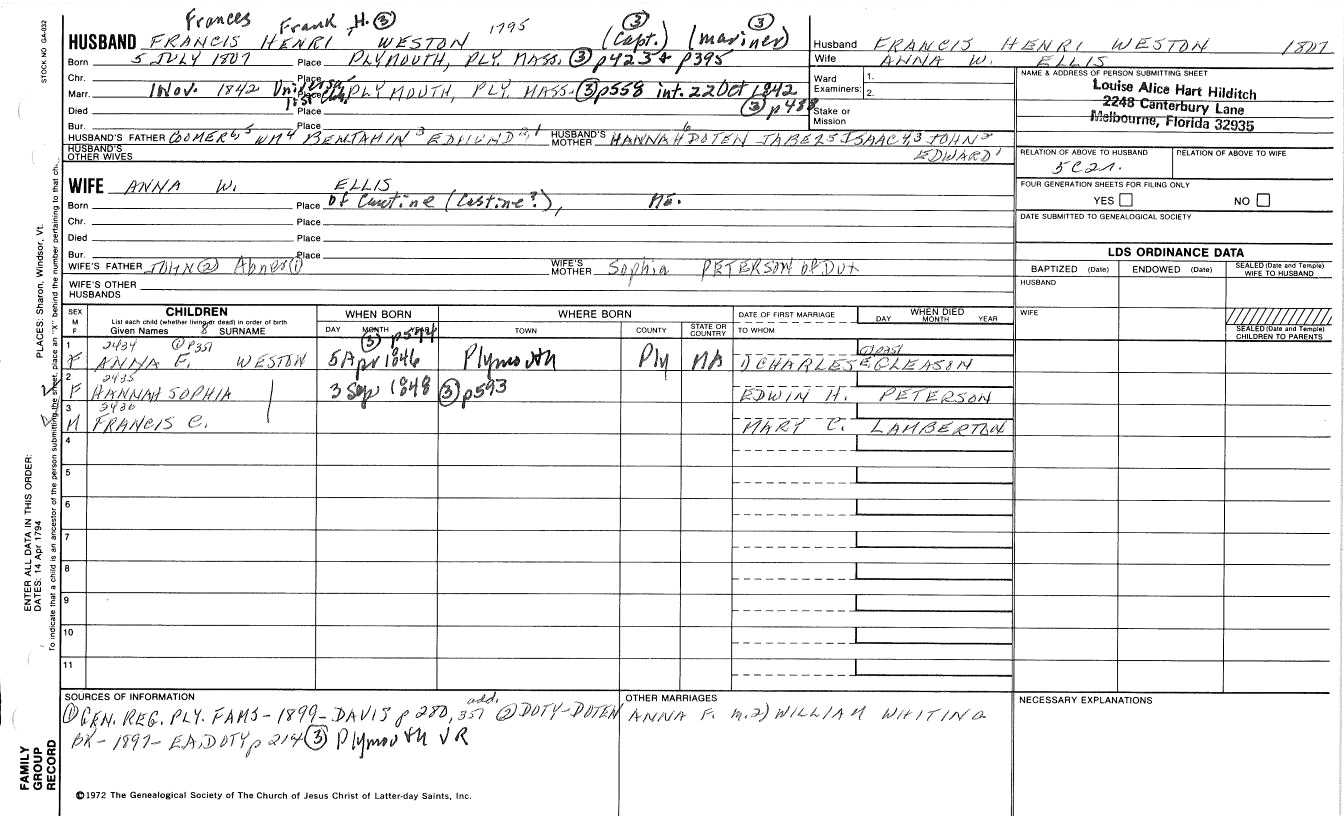 Frances Frank H. ③ 1795 ③ ③
STOCK NO. GA-032
HUSBAND FRANCIS HENRI WESTON (Capt.) (mariner)
Born 5 JULY 1807 Place PLYMOUTH, PLY. MASS. ③ p423 + p395
Chr. Place
Marr. 1 Nov. 1842 Place PLYMOUTH, PLY. MASS. ③ p558 int. 22 Oct 1842
Died Place ③ p488
Bur. Place
HUSBAND'S FATHER COOMER 6, 5 WM 4 BENJAMIN 3 EDMUND 2, 1 HUSBAND'S MOTHER HANNAH 6 DOTEN JABEZ 5 ISAAC 4, 3 JOHN 2
HUSBAND'S OTHER WIVES EDWARD 1
Husband FRANCIS HENRI WESTON 1807
Wife ANNA W. ELLIS
Ward 1.
Examiners: 2.
Stake or Mission
NAME & ADDRESS OF PERSON SUBMITTING SHEET
Louise Alice Hart Hilditch
2248 Canterbury Lane
Melbourne, Florida 32935
RELATION OF ABOVE TO HUSBAND RELATION OF ABOVE TO WIFE
5C2r.
FOUR GENERATION SHEETS FOR FILING ONLY
YES NO
DATE SUBMITTED TO GENEALOGICAL SOCIETY
WIFE ANNA W. ELLIS
Born Place Of Custine (Castine?), Me.
Chr. Place
Died Place
Bur. Place
WIFE'S FATHER JOHN ② Abner ① WIFE'S MOTHER Sophia PETERSON of Dux
WIFE'S OTHER HUSBANDS
LDS ORDINANCE DATA
BAPTIZED (Date) ENDOWED (Date) SEALED (Date and Temple) WIFE TO HUSBAND
HUSBAND
WIFE
SEALED (Date and Temple) CHILDREN TO PARENTS
SEX M F
CHILDREN
List each child (whether living or dead) in order of birth
Given Names 8 SURNAME
WHEN BORN
DAY MONTH YEAR
WHERE BORN
TOWN COUNTY STATE OR COUNTRY
DATE OF FIRST MARRIAGE
TO WHOM
WHEN DIED
DAY MONTH YEAR
③ p594
2434 ① p351 ① p351
1 F ANNA F. WESTON 5 Apr 1846 Plymouth Ply MA 1) CHARLES E GLEASON
2435
2 F HANNAH SOPHIA 3 Sep 1848 ③ p593 EDWIN H. PETERSON
2436
3 M FRANCIS C. MARY C. LAMBERTON
4
5
6
7
8
9
10
11
SOURCES OF INFORMATION
① GEN. REG. PLY. FAMS - 1899 - DAVIS p 280, add. 351 ② DOTY-DOTEN
BK - 1897 - EA. DOTY p 214 ③ Plymouth VR
OTHER MARRIAGES
ANNA F. m. 2) WILLIAM WHITING
NECESSARY EXPLANATIONS
©1972 The Genealogical Society of The Church of Jesus Christ of Latter-day Saints, Inc.
FAMILY GROUP RECORD
ENTER ALL DATA IN THIS ORDER:
DATES: 14 Apr 1794
PLACES: Sharon, Windsor, Vt.
To indicate that a child is an ancestor of the person submitting the sheet, place an "X" behind the number pertaining to that ch.